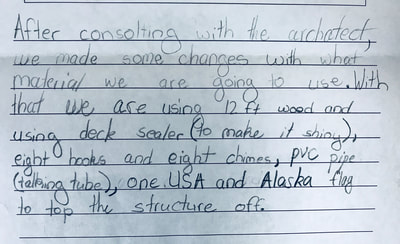 After consolting with the archetect,
we made some changes with what
material we are going to use. With
that we are using 12 ft wood and
using deck sealer (to make it shiny),
eight books and eight chimes, PVC pipe
(talking tube), one USA and Alaska flag
to top the structure off.